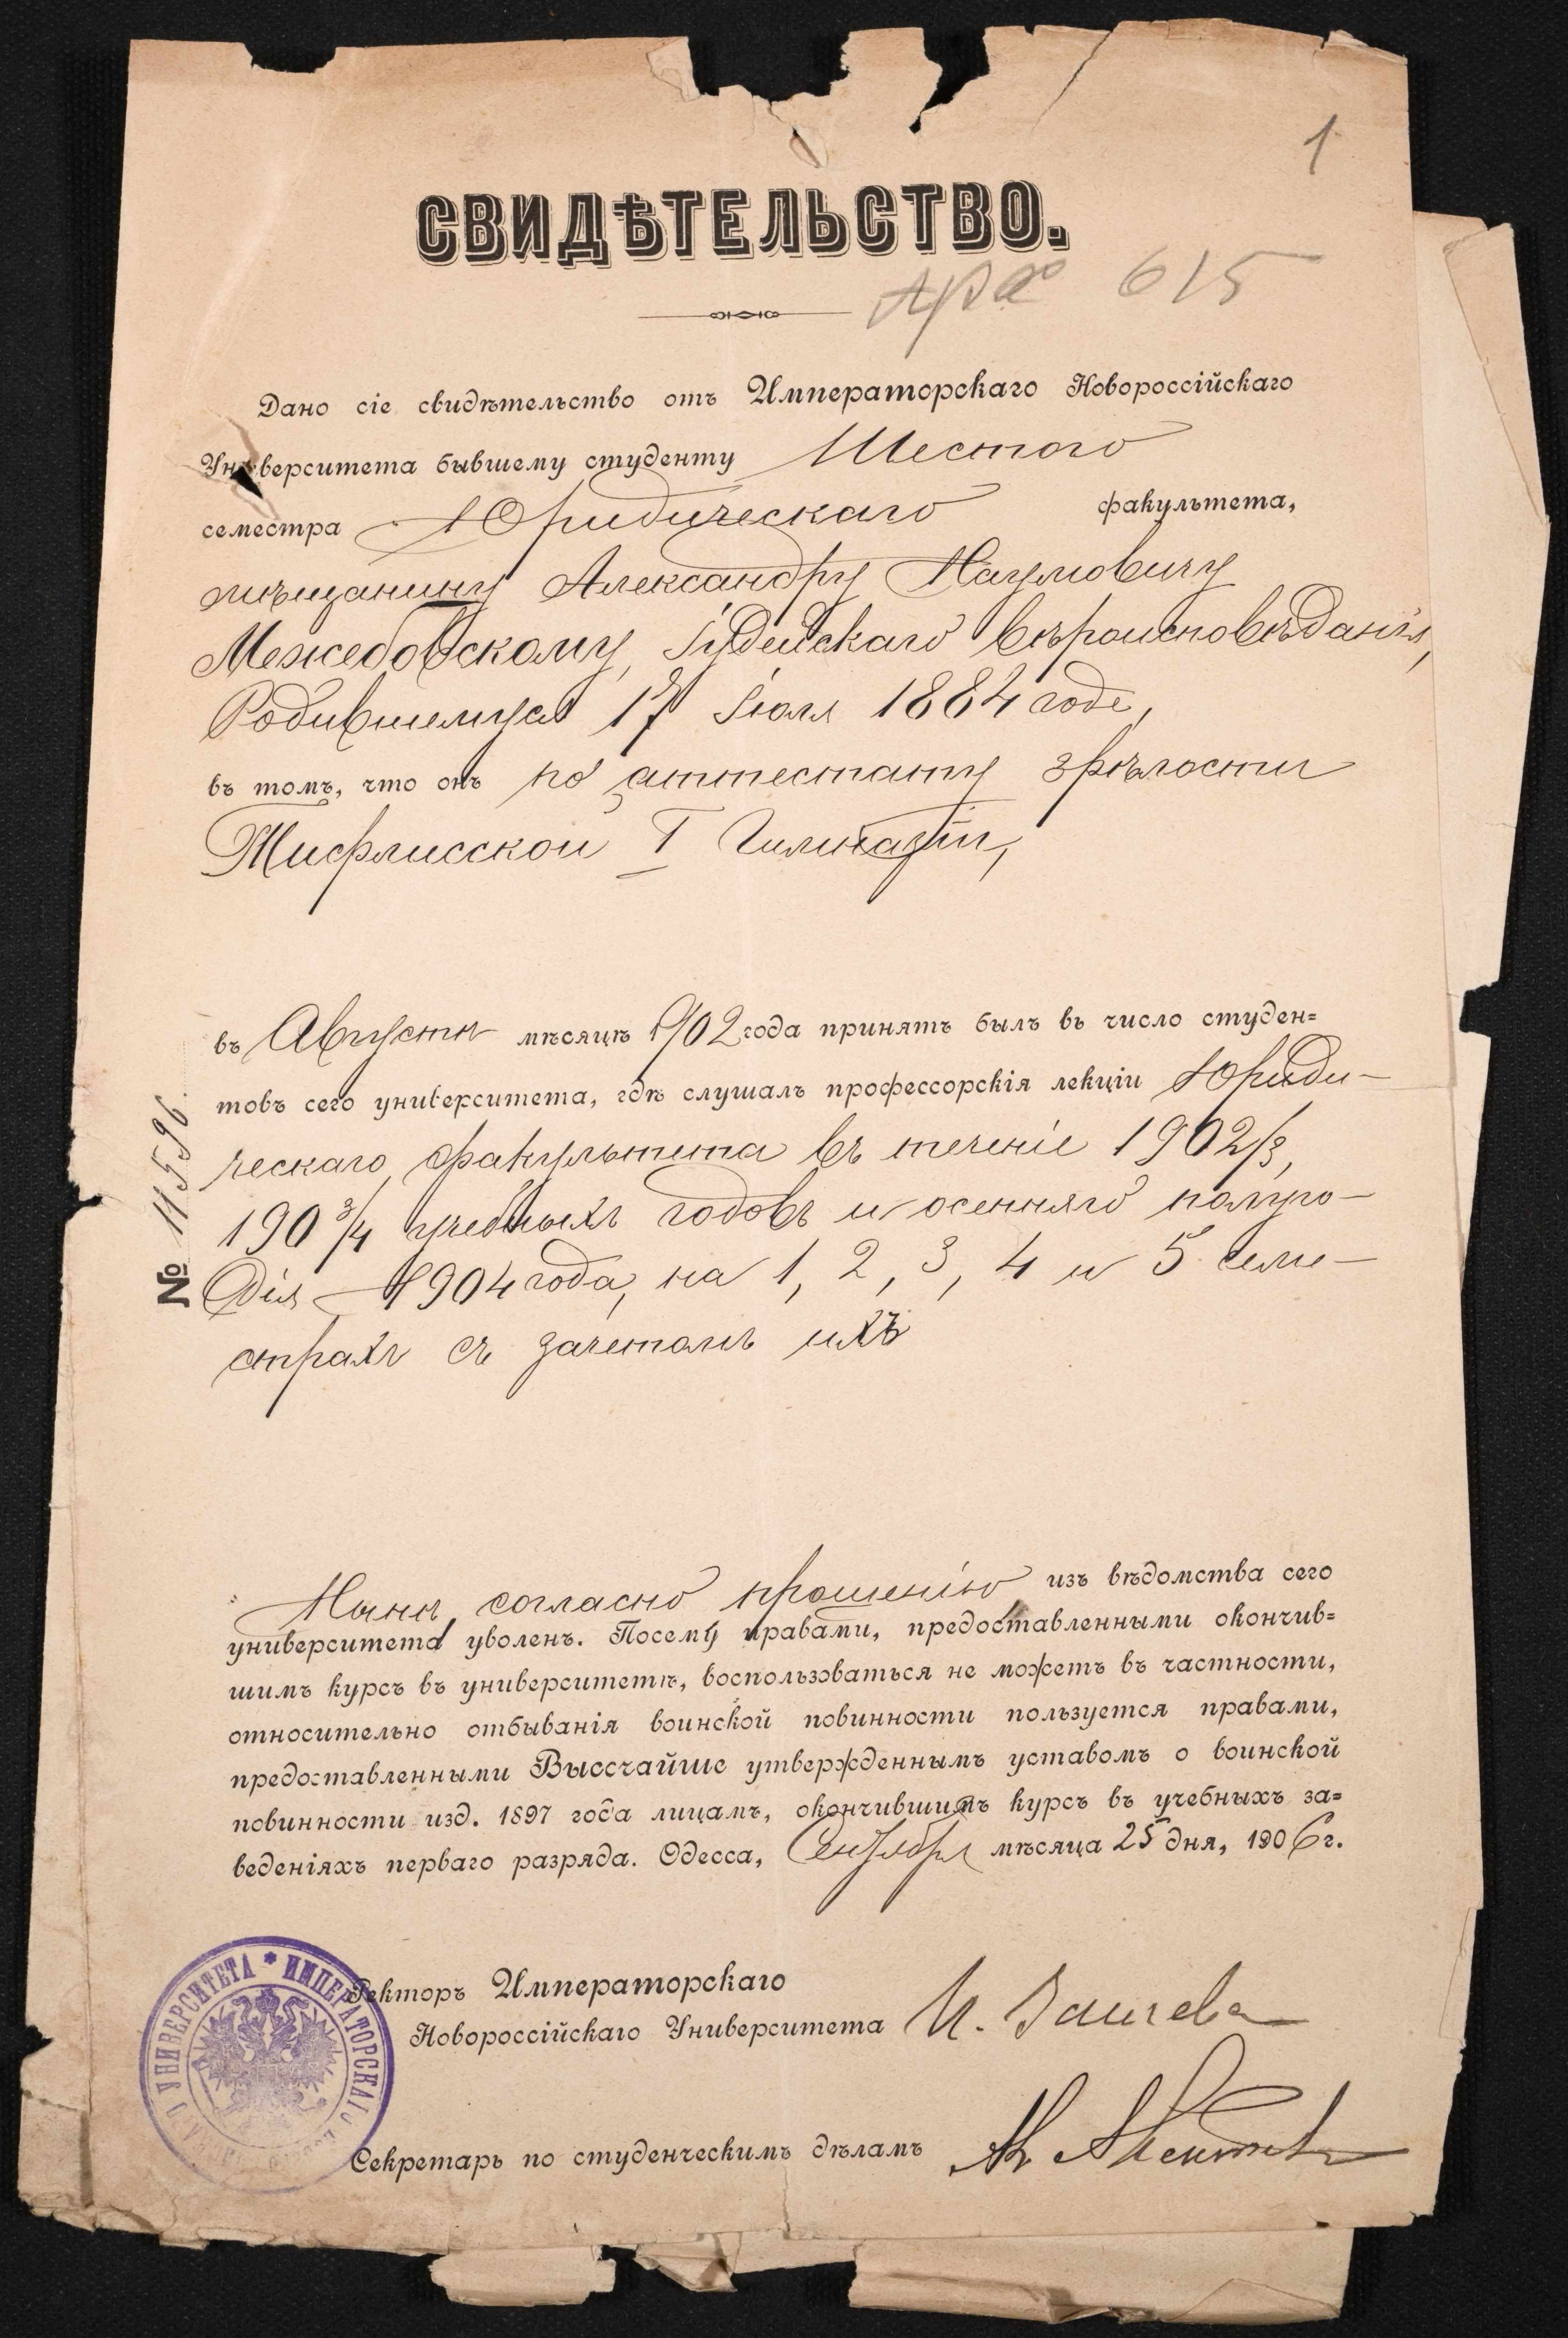 1
СВИДѢТЕЛЬСТВО.
615
Дано сіе свидѣтельство отъ Императорскаго Новороссійскаго
Университета бывшему студенту Шестого
семестра Юридическаго факультета,
мѣщанину Александру Наумовичу
Межебовскому, Іудейскаго вѣроисповѣданія,
Родившемуся 17 Іюля 1884 годѣ,
въ томъ, что онъ по аттестату зрѣлости
Тифлисской I Гимназіи,
въ Августѣ мѣсяцѣ 1902 года принятъ былъ въ число студен=
товъ сего университета, гдѣ слушалъ профессорскія лекціи Юриди-
ческаго факультета въ теченіе 1902/3,
1903/4 учебныхъ годовъ и осенняго полуго-
дія 1904 года, на 1, 2, 3, 4 и 5 семе-
страхъ съ зачетомъ ихъ
№ 11596.
Нынѣ согласно прошенію изъ вѣдомства сего
университета уволенъ. Посему правами, предоставленными окончив=
шимъ курсъ въ университетѣ, воспользоваться не можетъ въ частности,
относительно отбыванія воинской повинности пользуется правами,
предоставленными Высочайше утвержденнымъ уставомъ о воинской
повинности изд. 1897 года лицамъ, окончившимъ курсъ въ учебныхъ за=
веденіяхъ перваго разряда. Одесса, Сентября мѣсяца 25 дня, 1906 г.
Ректоръ Императорскаго
Новороссійскаго Университета И. Занчевс
Секретарь по студенческимъ дѣламъ
УНИВЕРСИТЕТА * ИМПЕРАТОРСКАГО